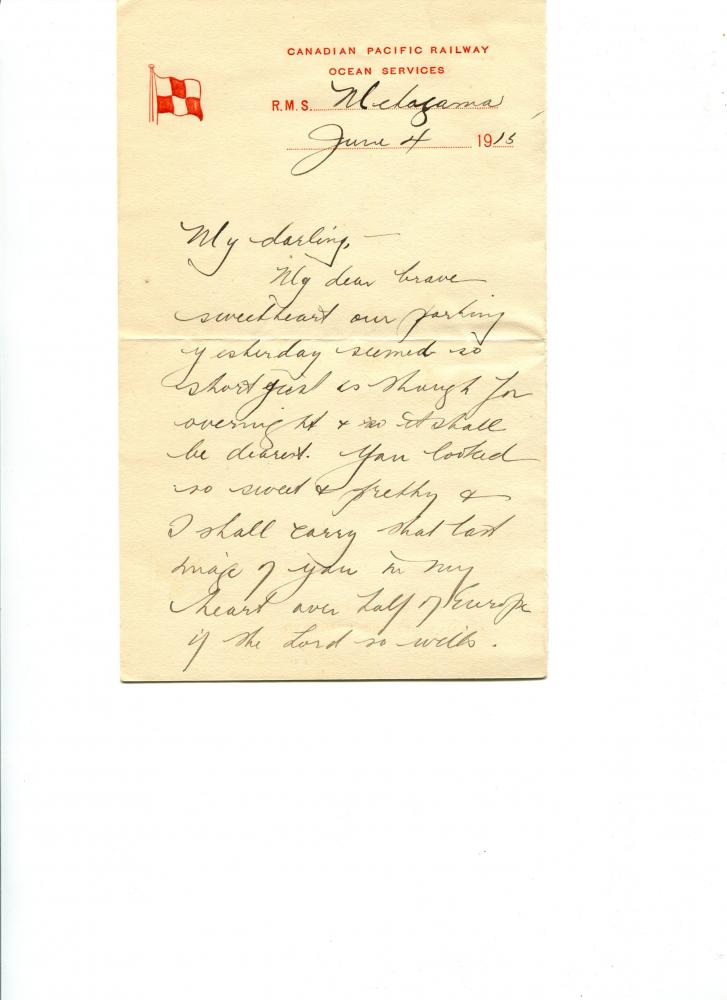 CANADIAN PACIFIC RAILWAY
OCEAN SERVICES
R.M.S. Metagama
June 4 1915
My darling, —
My dear brave
sweetheart our parting
yesterday seemed so
short just as though for
overnight & so it shall
be dearest. You looked
so sweet & pretty &
I shall carry that last
image of you in my
heart over half of Europe
if the Lord so wills.